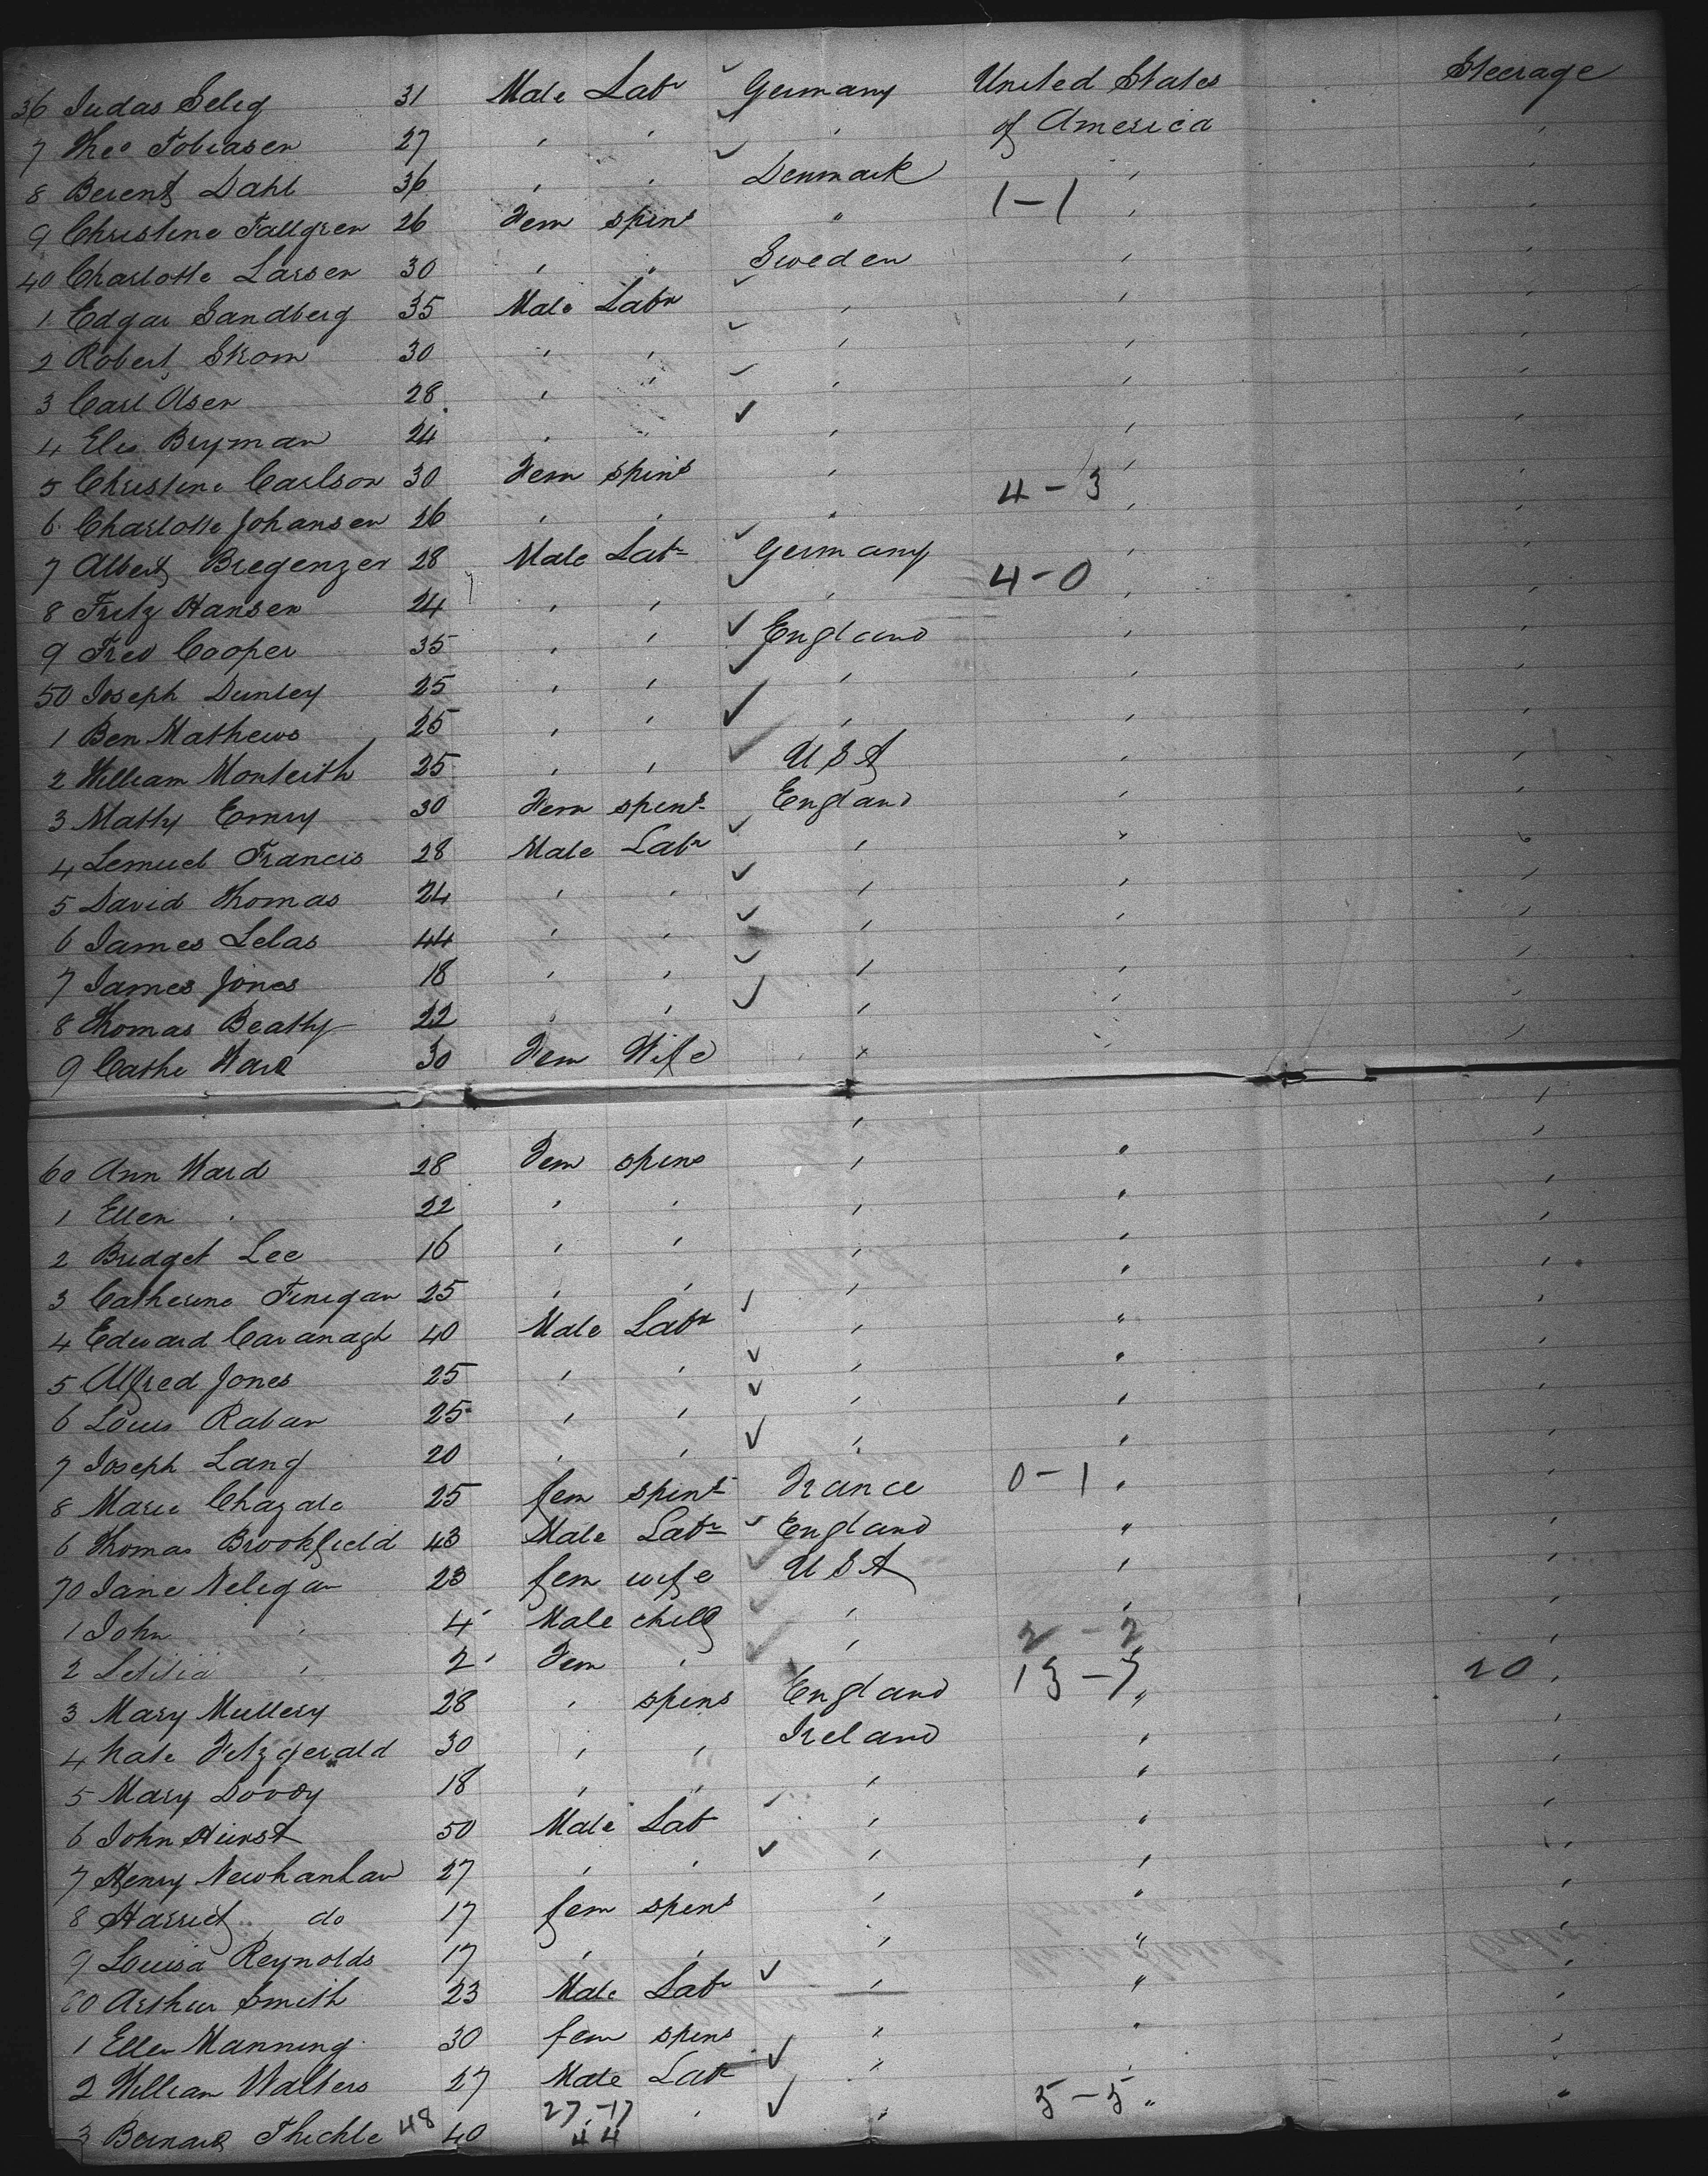 36 Judas Selig 31 Male Labr Germany United States Steerage
7 Theo Tobiasen 27 " " " of America "
8 Berent Dahl 36 " " Denmark " "
9 Christine Fallgren 26 Fem spins " 1-1 " "
40 Charlotte Larsen 30 " " Sweden " "
1 Edgar Sandberg 35 Male Labr " " "
2 Robert Strom 30 " " " " "
3 Carl Olsen 28 " " " " "
4 Elis Bryman 24 " " " " "
5 Christine Carlson 30 Fem spins " 4-3 " "
6 Charlotte Johansen 26 " " " " "
7 Albert Bregenzer 28 Male Labr Germany " "
8 Fritz Hansen 24 " " " 4-0 " "
9 Fred Cooper 35 " " England " "
50 Joseph Dunsey 25 " " " " "
1 Ben Mathews 25 " " " " "
2 William Monteith 25 " " USA " "
3 Matty Emry 30 Fem spins England " "
4 Lemuel Francis 28 Male Labr " " "
5 David Thomas 24 " " " " "
6 James Lelas 44 " " " " "
7 James Jones 18 " " " " "
8 Thomas Beatty 22 " " " " "
9 Cathe Ward 30 Fem Wife " " "
60 Ann Ward 28 Fem spins " " "
1 Ellen " 22 " " " " "
2 Bridget Lee 16 " " " " "
3 Catherine Finigan 25 " " " " "
4 Edward Cavanagh 40 Male Labr " " "
5 Alfred Jones 25 " " " " "
6 Louis Raban 25 " " " " "
7 Joseph Lang 20 " " " " "
8 Marie Chazale 25 fem spins France 0-1 " "
6 Thomas Brookfield 43 Male Labr England " "
70 Jane Neligan 23 fem wife USA " "
1 John " 4 Male child " " "
2 Letitia " 2 Fem " " 2-2 " "
3 Mary Mullery 28 " spins England 13-7 " 20 "
4 Kate Fitzgerald 30 " " Ireland " "
5 Mary Doody 18 " " " " "
6 John Hurst 50 Male Lab " " "
7 Henry Newhanhan 27 " " " " "
8 Harriet do 17 fem spins " " "
9 Louisa Reynolds 17 " " " " "
80 Arthur Smith 23 Male Labr " " "
1 Ellen Manning 30 fem spins " " "
2 William Walters 27 Male Labr " " "
3 Bernard Thichle 48 40 27-17 " " 5-5 " "
44